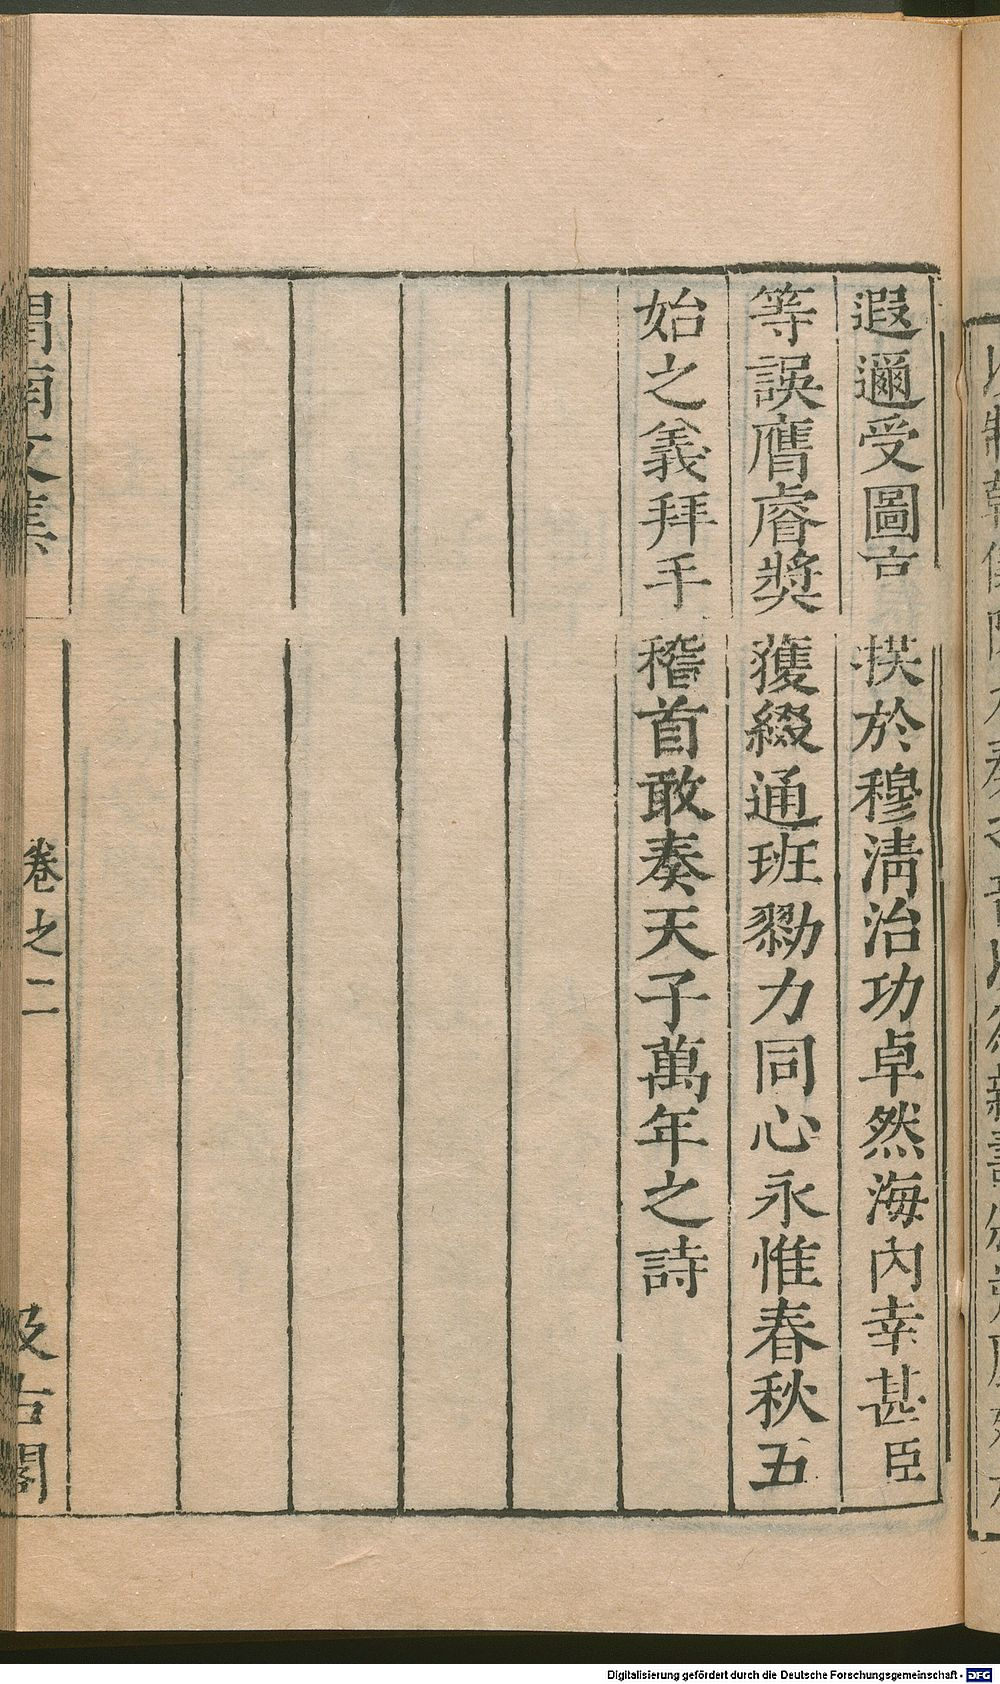 遐邇受圖言揆於穆淸治功卓然海內幸甚臣
等誤膺睿奬獲綴通班勠力同心永惟春秋五
始之義拜手稽首敢奏天子萬年之詩
渭南文集
卷之二
汲古閣
Digitalisierung gefördert durch die Deutsche Forschungsgemeinschaft - DFG